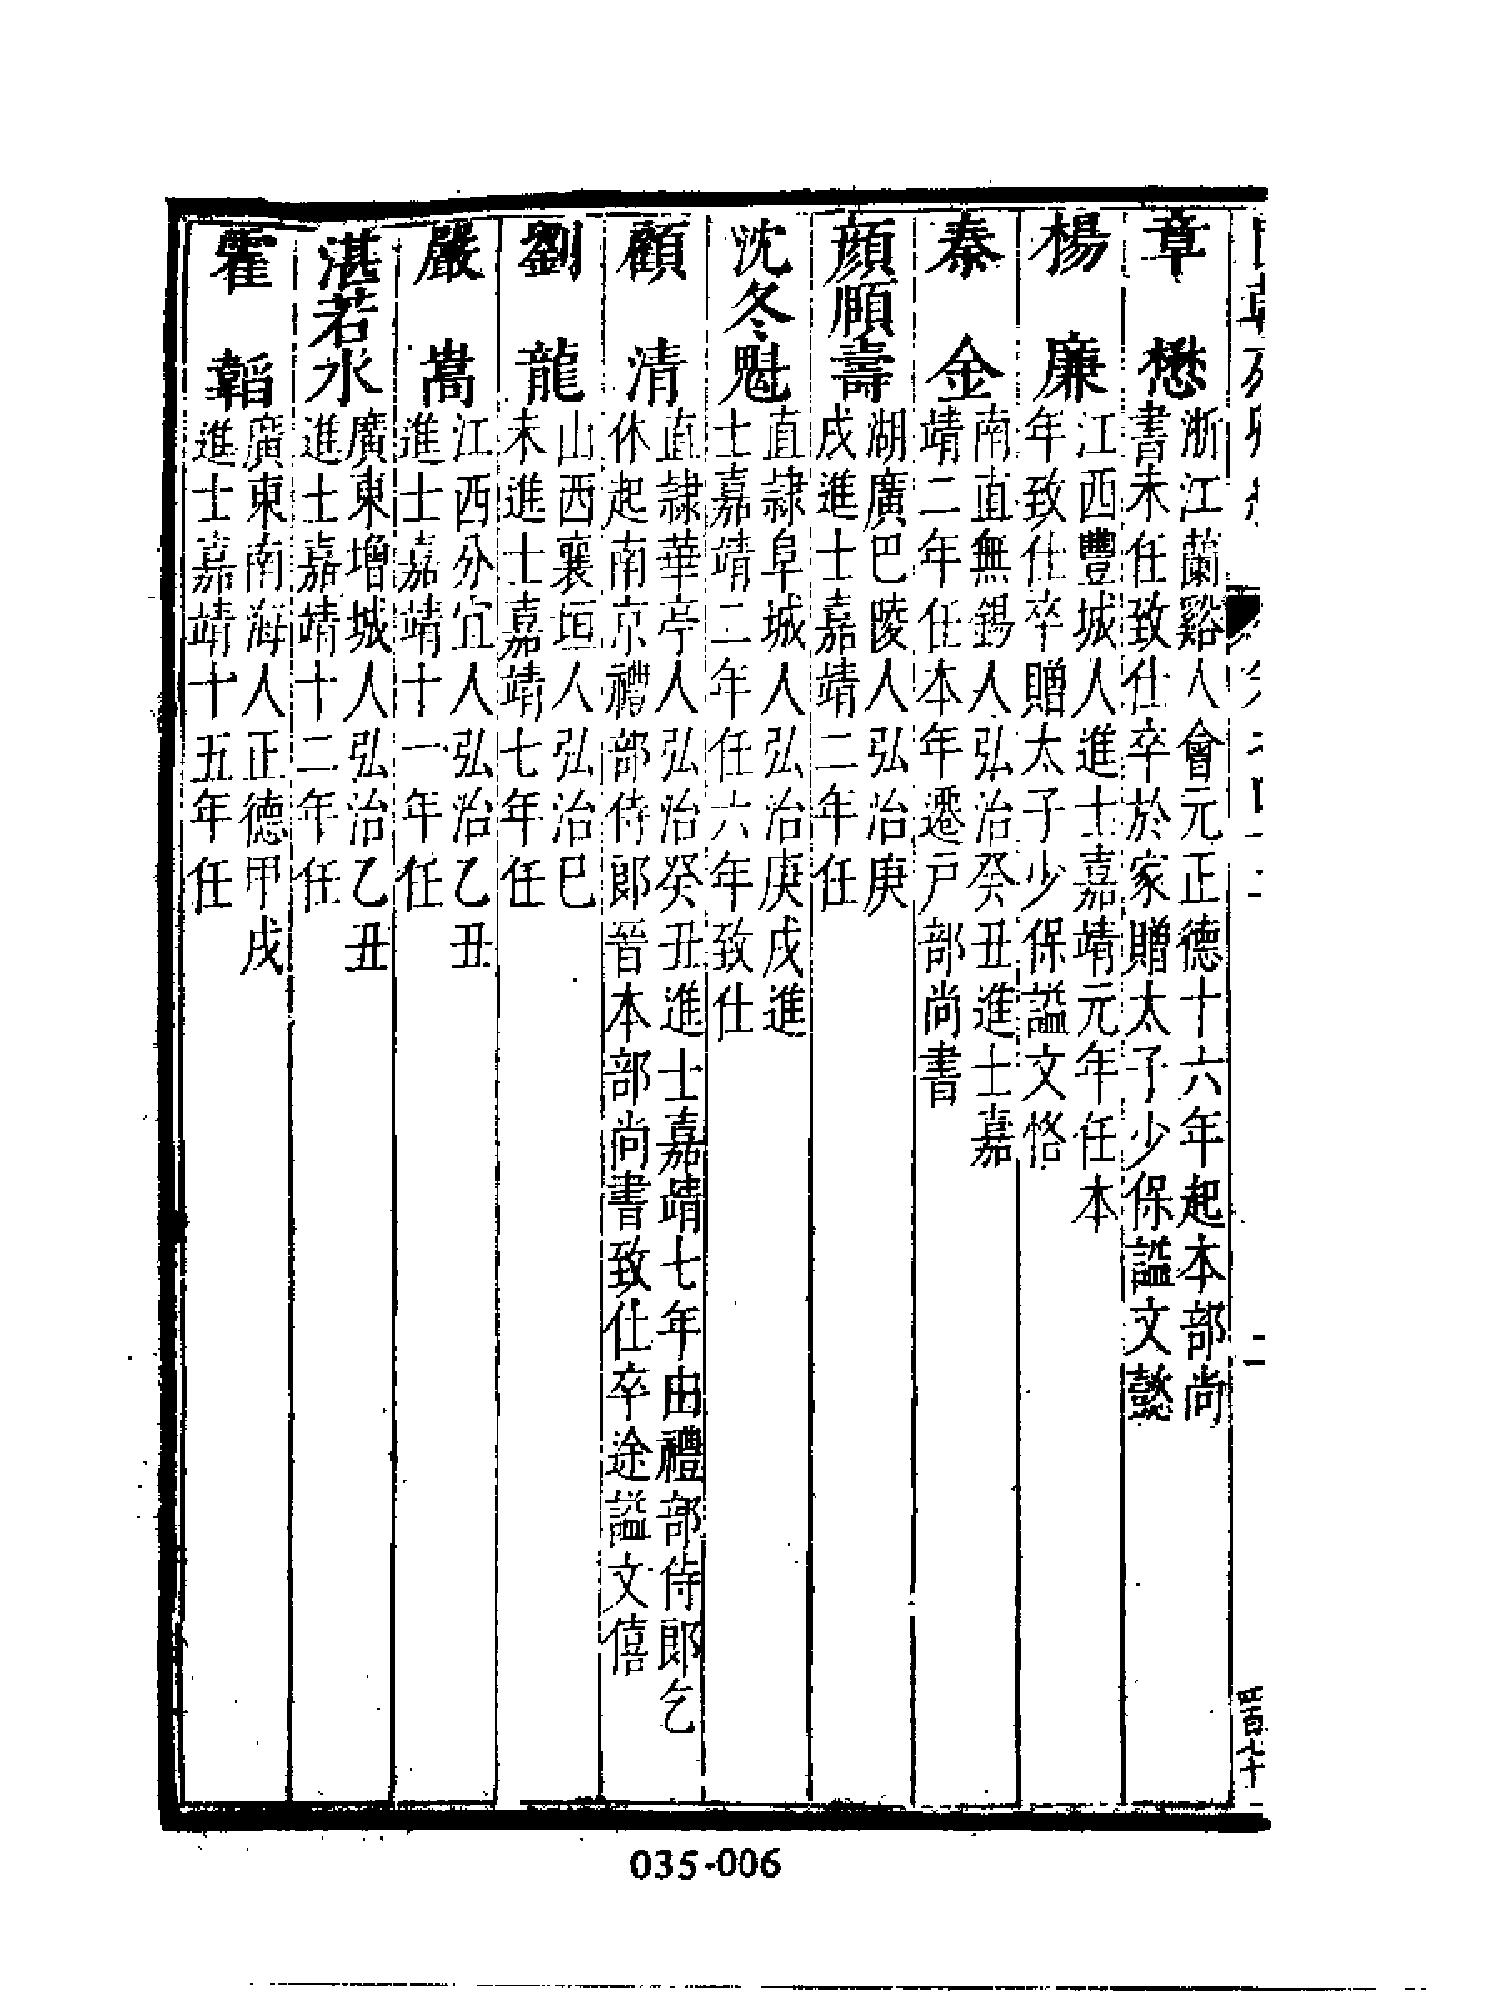 章懋
浙江蘭谿人會元正德十六年起本部尚
書未任致仕卒於家贈太子少保謚文懿
楊廉
江西豐城人進士嘉靖元年任本
年致仕卒贈太子少保謚文恪
秦金
南直無錫人弘治癸丑進士嘉
靖二年任本年遷戶部尚書
顏順壽
湖廣巴陵人弘治庚
戌進士嘉靖二年任
沈冬魁
直隷阜城人弘治庚戌進
士嘉靖二年任六年致仕
顧清
直隷華亭人弘治癸丑進士嘉靖七年由禮部侍郎乞
休起南京禮部侍郎晉本部尚書致仕卒途謚文僖
劉龍
山西襄垣人弘治巳
未進士嘉靖七年任
嚴嵩
江西分宜人弘治乙丑
進士嘉靖十一年任
湛若水
廣東增城人弘治乙丑
進士嘉靖十二年任
霍韜
廣東南海人正德甲戌
進士嘉靖十五年任
四百七十
035-006